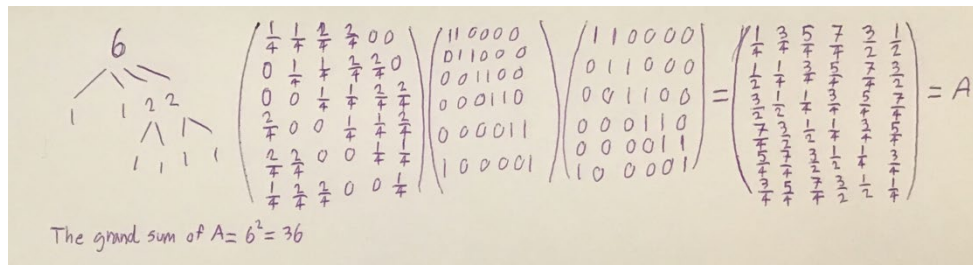 6
1 1 2 2
1 1 1 1
1/4 1/4 2/4 2/4 0 0
0 1/4 1/4 2/4 2/4 0
0 0 1/4 1/4 2/4 2/4
2/4 0 0 1/4 1/4 2/4
2/4 2/4 0 0 1/4 1/4
1/4 2/4 2/4 0 0 1/4
1 1 0 0 0 0
0 1 1 0 0 0
0 0 1 1 0 0
0 0 0 1 1 0
0 0 0 0 1 1
1 0 0 0 0 1
1 1 0 0 0 0
0 1 1 0 0 0
0 0 1 1 0 0
0 0 0 1 1 0
0 0 0 0 1 1
1 0 0 0 0 1
=
1/4 3/4 5/4 7/4 3/2 1/2
1/2 1/4 3/4 5/4 7/4 3/2
3/2 1/2 1/4 3/4 5/4 7/4
7/4 3/2 1/2 1/4 3/4 5/4
5/4 7/4 3/2 1/2 1/4 3/4
3/4 5/4 7/4 3/2 1/2 1/4
= A
The grand sum of A = 6² = 36